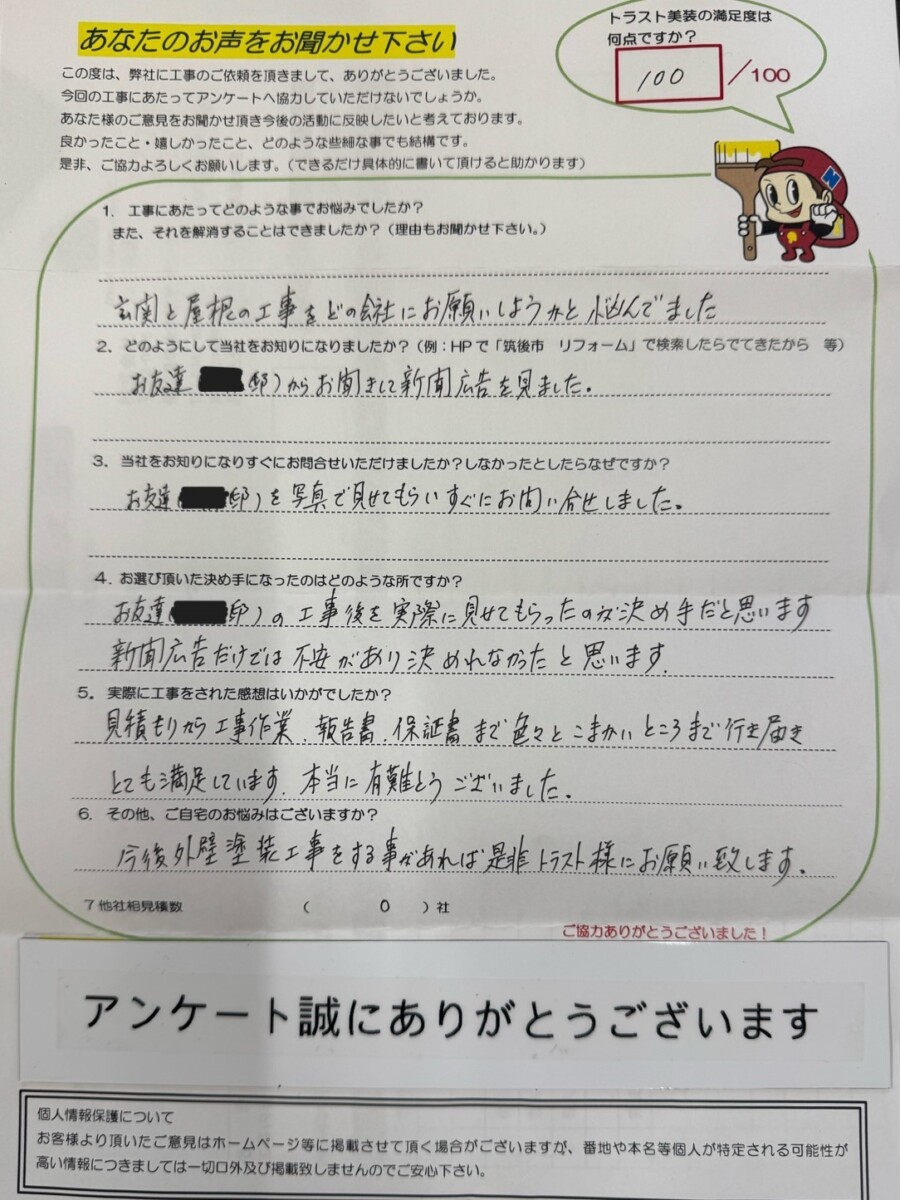 あなたのお声をお聞かせ下さい
トラスト美装の満足度は
何点ですか？
100／100
この度は、弊社に工事のご依頼を頂きまして、ありがとうございました。
今回の工事にあたってアンケートへ協力していただけないでしょうか。
あなた様のご意見をお聞かせ頂き今後の活動に反映したいと考えております。
良かったこと・嬉しかったこと、どのような些細な事でも結構です。
是非、ご協力よろしくお願いします。（できるだけ具体的に書いて頂けると助かります）
N
1．工事にあたってどのような事でお悩みでしたか？
また、それを解消することはできましたか？（理由もお聞かせ下さい。）
玄関と屋根の工事をどの会社にお願いしようかと悩んでました
2．どのようにして当社をお知りになりましたか？（例：HPで「筑後市　リフォーム」で検索したらでてきたから　等）
お友達 邸）からお聞きして新聞広告を見ました。
3．当社をお知りになりすぐにお問合せいただけましたか？しなかったとしたらなぜですか？
お友達（ 邸）を写真で見せてもらいすぐにお問い合せしました。
4．お選び頂いた決め手になったのはどのような所ですか？
お友達（ 邸）の工事後を実際に見せてもらったのが決め手だと思います
新聞広告だけでは不安があり決めれなかったと思います．
5．実際に工事をされた感想はいかがでしたか？
見積もりから工事作業、報告書、保証書まで色々とこまかいところまで行き届き
とても満足しています．本当に有難とうございました。
6．その他、ご自宅のお悩みはございますか？
今後外壁塗装工事をする事があれば是非トラスト様にお願い致します。
7 他社相見積数　（　0　）社
ご協力ありがとうございました！
アンケート誠にありがとうございます
個人情報保護について
お客様より頂いたご意見はホームページ等に掲載させて頂く場合がございますが、番地や本名等個人が特定される可能性が
高い情報につきましては一切口外及び掲載致しませんのでご安心下さい。